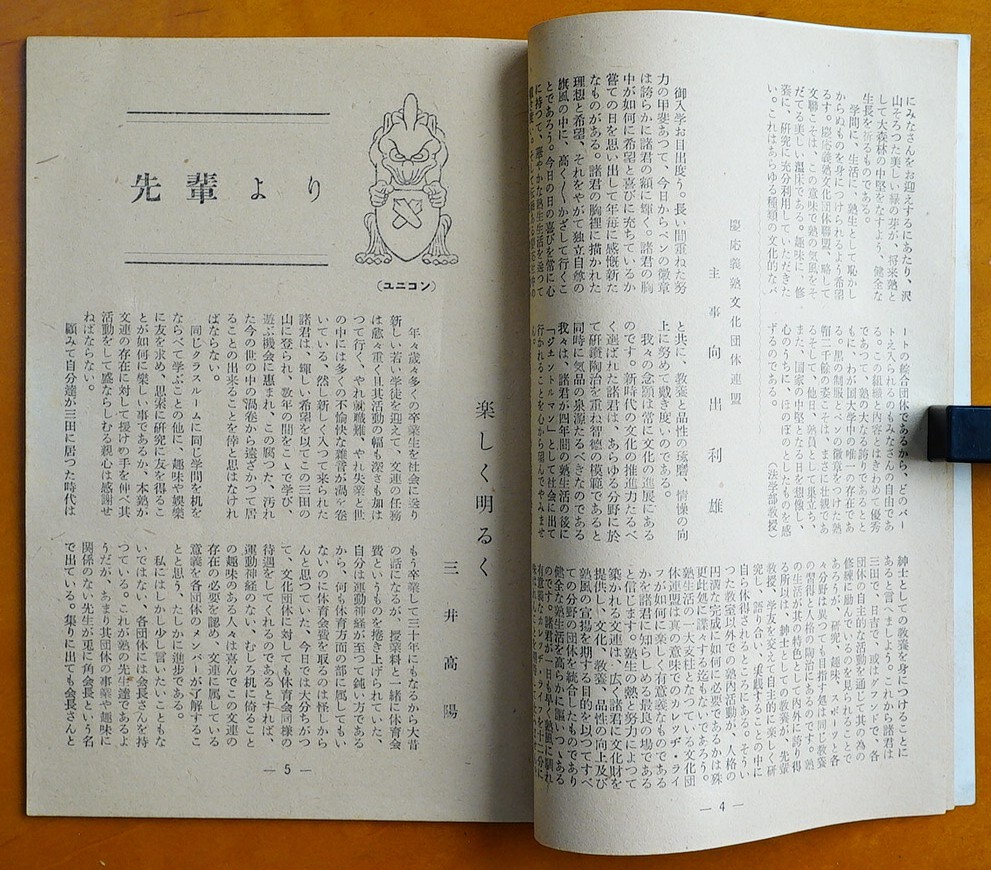 にみなさんをお迎えするにあたり、沢
山そろつた美しい緑の芽が、将来塾と
して大森林の中堅をなすよう、健全な
生長を祈るものである。
学問に、生活に、塾生として恥かし
からぬものを身に付けられるよう希望
るする。慶応義塾文化団体聯盟、略して
文聯こそは、この意味で塾の気風をそ
だてる美しい温床である。趣味に、修
養に、研究に充分利用していただきた
い。これはあらゆる種類の文化的なパ
ートの綜合団体であるから、どのパー
トえ入られるのもみなさんの自由であ
る。この組織と内容とはきわめて優秀
であつて、塾の大なる誇りであるとと
もに、わが国大学中の唯一の存在であ
る。黒の制服とペンの徽章をつけた塾
帽二千餘の姿こそは、まさに壮観であ
る。そして他日、塾員として巣立ち、
また、国家の中堅となる日を想像して
心のうちに、ほのぼのとしたものを感
ずるのである。（法学部教授）
慶応義塾文化団体連盟
主事 向出利雄
御入学お目出度う。長い間重ねた努
力の甲斐あつて、今日からペンの徽章
は誇らかに諸君の額に輝く。諸君の胸
中が如何に希望と喜びに充ちているか
嘗ての日を思い出して年毎に感慨新た
なものがある。諸君の胸裡に描かれた
理想と希望、それをやがて独立自尊の
旗風の中に、高く〱かざして行くこ
とであろう。今日の日の喜びを常に心
に持つて、華やかな塾生生活を送つて
と共に、教養と品性の琢磨、情操の向
上に努めて戴き度いのである。
我々の念願は常に文化の進展にある
のです。新時代の文化の推進力たるべ
く選ばれた諸君は、あらゆる分野に於
て研鑽陶治を重ね智徳の模範であると
同時に気品の泉源たるべきなのである
我々は、諸君が四年間の塾生活の後に
「ジェントルマン」として社会に出て
行かれることを心から望んでやみませ
ん。
紳士としての教養を身につけることに
あると言へましよう。これから諸君は
三田で、日吉で、或はグランドで、各
団体の自主的な活動を通して其の為の
修練に励んでいるのを見られることで
あろうが、研究、趣味、スポーツと各
々分野は異つても目指す処は同じ教養
の習得と人格の陶治にあるのです。塾
の生活が一種の特色として内外に誇り得
る所以は、紳士としての教養が、先輩
教授、学友を交えて自主的に楽しく研
究し、語り合い、実践することの中に
自ら体得されるところにある。そうい
つた教室以外での塾内活動が、人格の
円満な完成に如何に必要であるかは殊
更此処に諜々する迄もないであろう。
塾生活の一大支柱となつている文化団
体連盟は真の意味でのカレッヂ・ライ
フが如何に楽しく有意義なものである
かを諸君に知らしめる最良の場である
と信じます。塾生の熱と努力によつて
築かれる文連は、広く諸君に文化財を
提供し、文化人の教養、品性の向上及び
塾風の宣揚を期する目的を以つてすべ
ての分野の団体を統合したものであり
健全な塾生活を高らかに謳つている
のです。諸君が一日も早く、塾風に馴れ
有意義なカレッヂ・ライフを十二分に
— 4 —
（ユニコン）
先輩より
楽しく明るく
三井高陽
年々歳々多くの卒業生を社会に送り
新しい若い学徒を迎えて、文連の任務
は愈々重く且其活動の幅も深さも加は
つて行く、やれ就職難、やれ失業と世
の中には多くの不愉快な雑音が渦を巻
いている、然し新しく入つて来られた
諸君は、輝しい希望を以てこの三田の
山に登られ、数年の間をこゝで学び、
遊ぶ機会に恵まれ、この腐つた、汚れ
た今の世の中の渦巻から遠ざかつて居
ることの出来ることを倖と思はなけれ
ばならない。
同じクラスルームに同じ学問を机を
ならべて学ぶことの他に、趣味や娯樂
に友を求め、思索に研究に友を得るこ
とが如何に樂しい事であるか、本塾が
文連の存在に対して援けの手を伸べ其
活動をして盛ならしむる親心は感謝せ
ねばならない。
顧みて自分達が三田に居つた時代は
もう卒業して三十年にもなるから大昔
の話になるが、授業料と一緒に体育会
費というものを捲き上げられていた、
自分は運動神経が至つて鈍い方である
から、何も体育方面の部に属してもい
ないのに体育会費を取るのは怪しから
んと思つていた、今日では大分ちがつ
て、文化団体に対しても体育会同様の
待遇をしてくれるのであるとすれば、
運動神経のない、むしろ机に倚ること
の趣味のある人々は喜んでこの文連の
存在の必要を認め、文連に属している
意義を各団体のメンバーが了解するこ
とと思う、たしかに進歩である。
私にはしかし少し言いたいこともな
いではない、各団体には会長さんを持
つている。これが塾の先生達であるよ
うだが、あまり其団体の事業や趣味に
関係のない先生が兎に角会長という名
で出ている。集りに出ても会長さんと
— 5 —